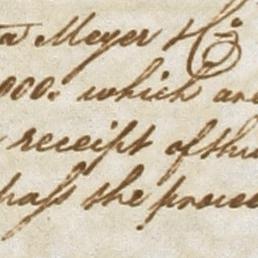 a Meyer & Co
000. which are
receipt of this
pass the procee